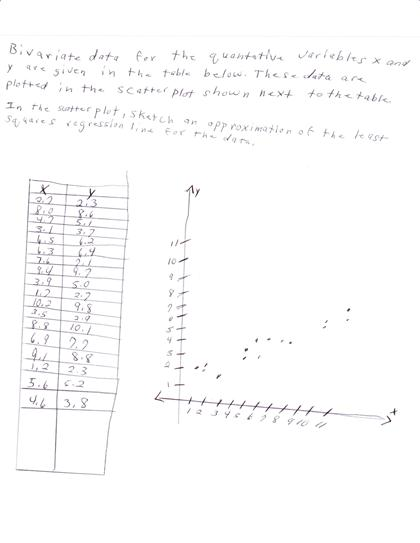 Bivariate data for the quantative variables x and
y are given in the table below. These data are
plotted in the scatter plot shown next to the table.
In the scatter plot, sketch an approximation of the least
squares regression line for the data.
x y
2.7 2.3
8.0 8.6
4.7 5.1
3.1 3.7
6.5 6.2
6.3 6.4
7.6 7.1
9.4 9.7
3.9 5.0
1.7 2.7
10.2 9.8
3.5 2.9
8.8 10.1
6.9 7.7
9.1 8.8
1.2 2.3
5.6 5.2
4.6 3.8
y
11
10
9
8
7
6
5
4
3
2
1
1 2 3 4 5 6 7 8 9 10 11
x